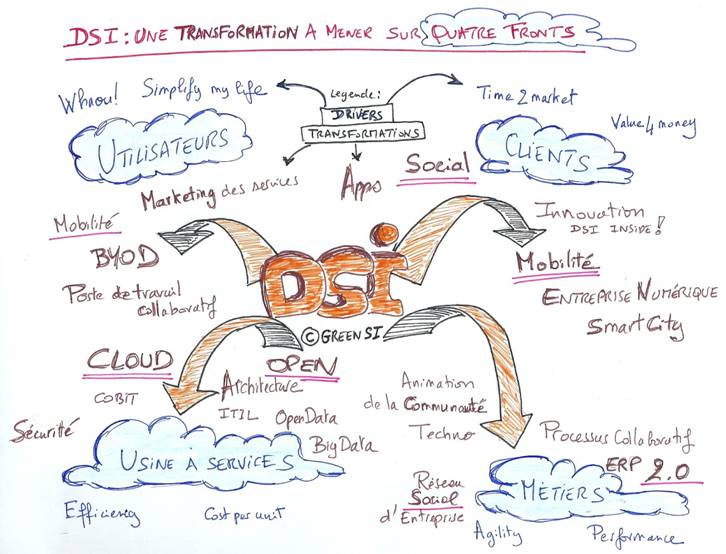 DSI : UNE TRANSFORMATION A MENER SUR QUATRE FRONTS
Whaou!
Simplify my life
Legende :
DRIVERS
TRANSFORMATIONS
Time 2 market
Value 4 money
UTILISATEURS
CLIENTS
Marketing des services
Apps
Social
Mobilité
BYOD
Poste de travail
collaboratif
Innovation
DSI INSIDE !
Mobilité
ENTREPRISE NUMÉRIQUE
Smart City
DSI
© GREEN SI
CLOUD
COBIT
Sécurité
OPEN
Architecture
ITIL
OpenData
BigData
USINE À SERVICES
Efficiency
Cost per unit
Animation
de la Communauté
Techno
Réseau
Social
d'Entreprise
Processus Collaboratif
ERP 2.0
MÉTIERS
Agility
Performance